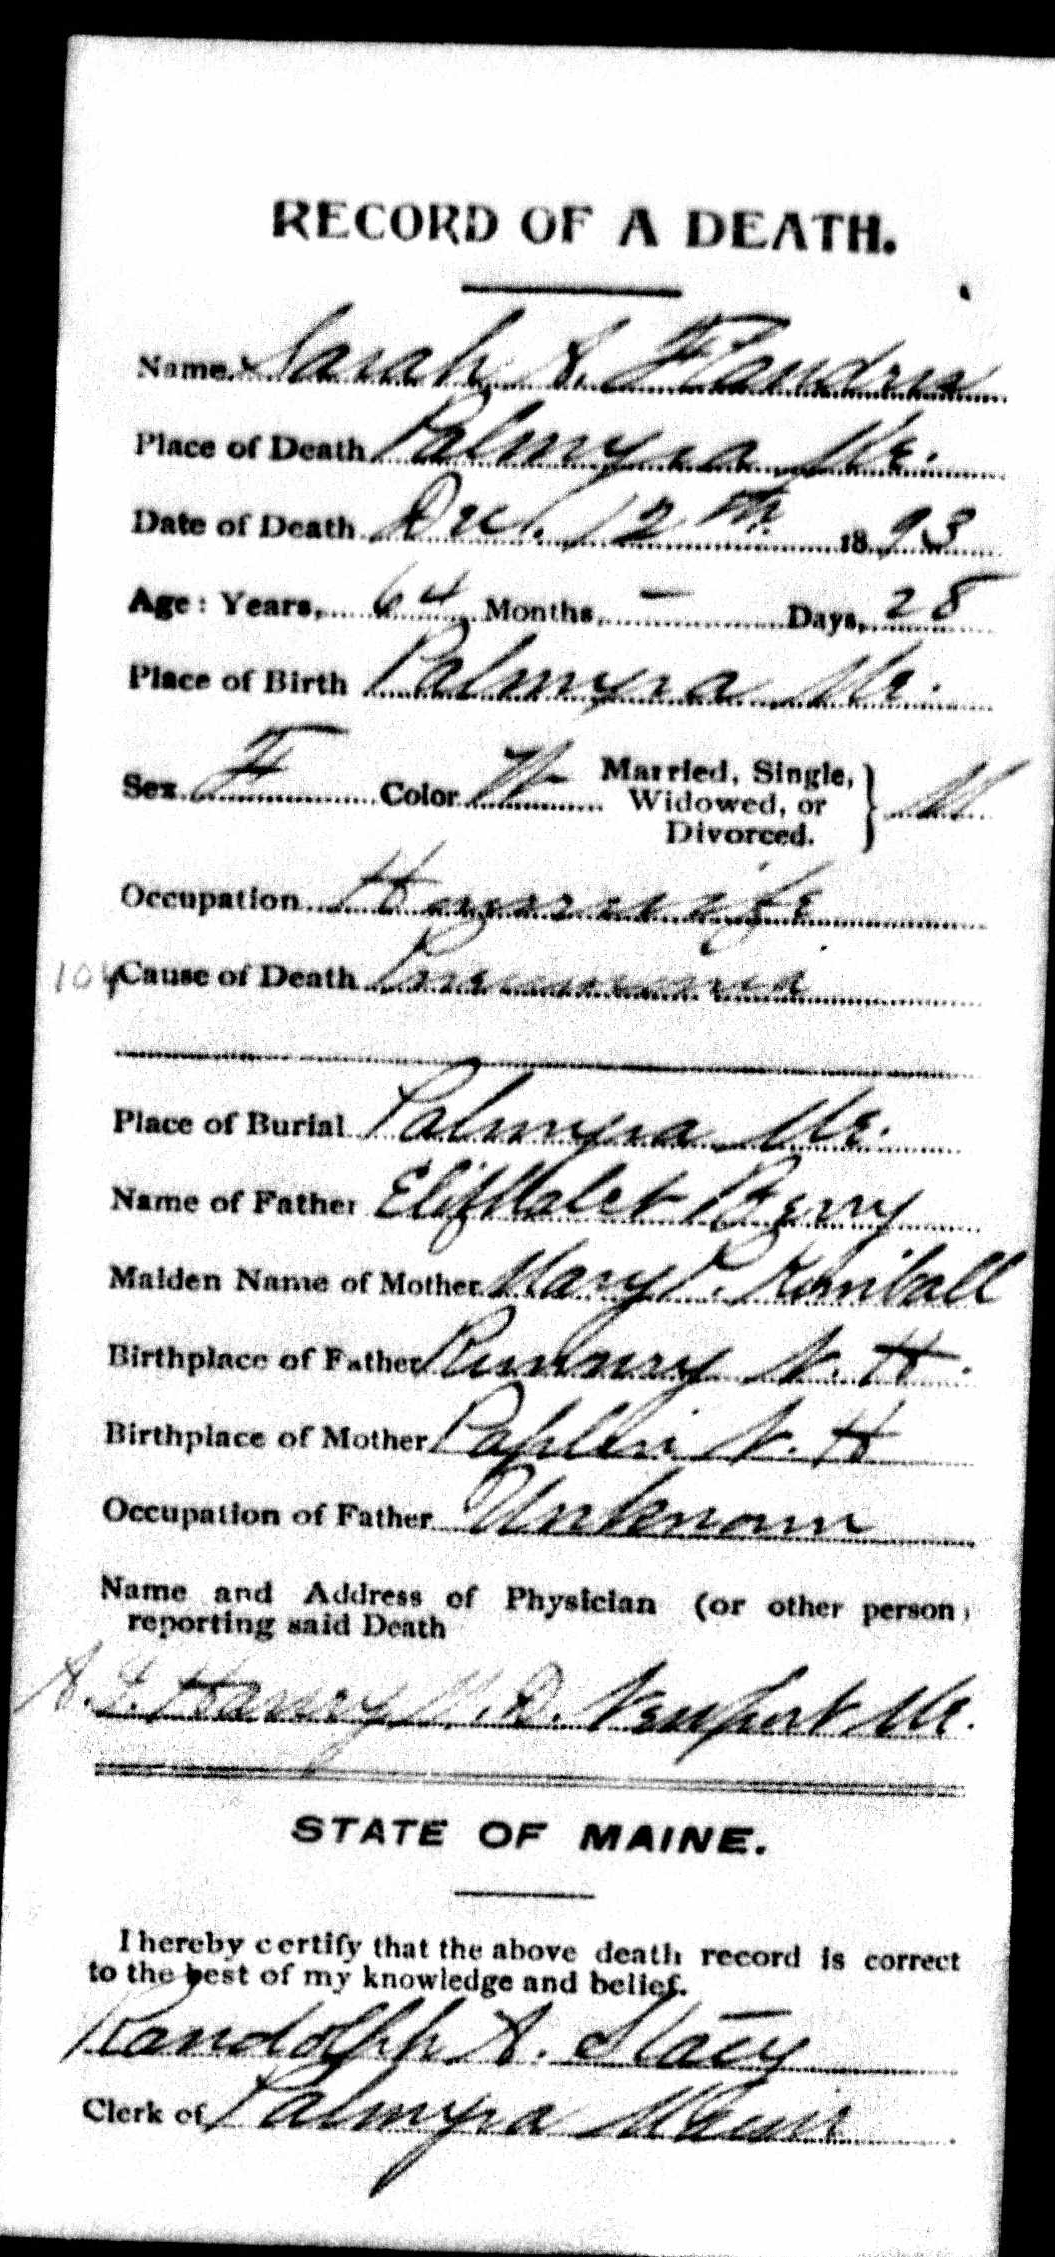 RECORD OF A DEATH.
Name. Sarah A. Flandrs
Place of Death Palmyra Me.
Date of Death Dec. 12th 1893
Age: Years, 64 Months, – Days, 28
Place of Birth Palmyra Me.
Sex F Color W Married, Single, Widowed, or Divorced. } M
Occupation Housewife
104 Cause of Death Pneumonia
Place of Burial Palmyra Me.
Name of Father Berry
Maiden Name of Mother Mary P. Kimball
Birthplace of Father Rumney N. H.
Birthplace of Mother N. H
Occupation of Father Unknown
Name and Address of Physician (or other person)
reporting said Death
M. D. Newport Me.
STATE OF MAINE.
I hereby certify that the above death record is correct
to the best of my knowledge and belief.
Randolph A. Stacy
Clerk of Palmyra Maine